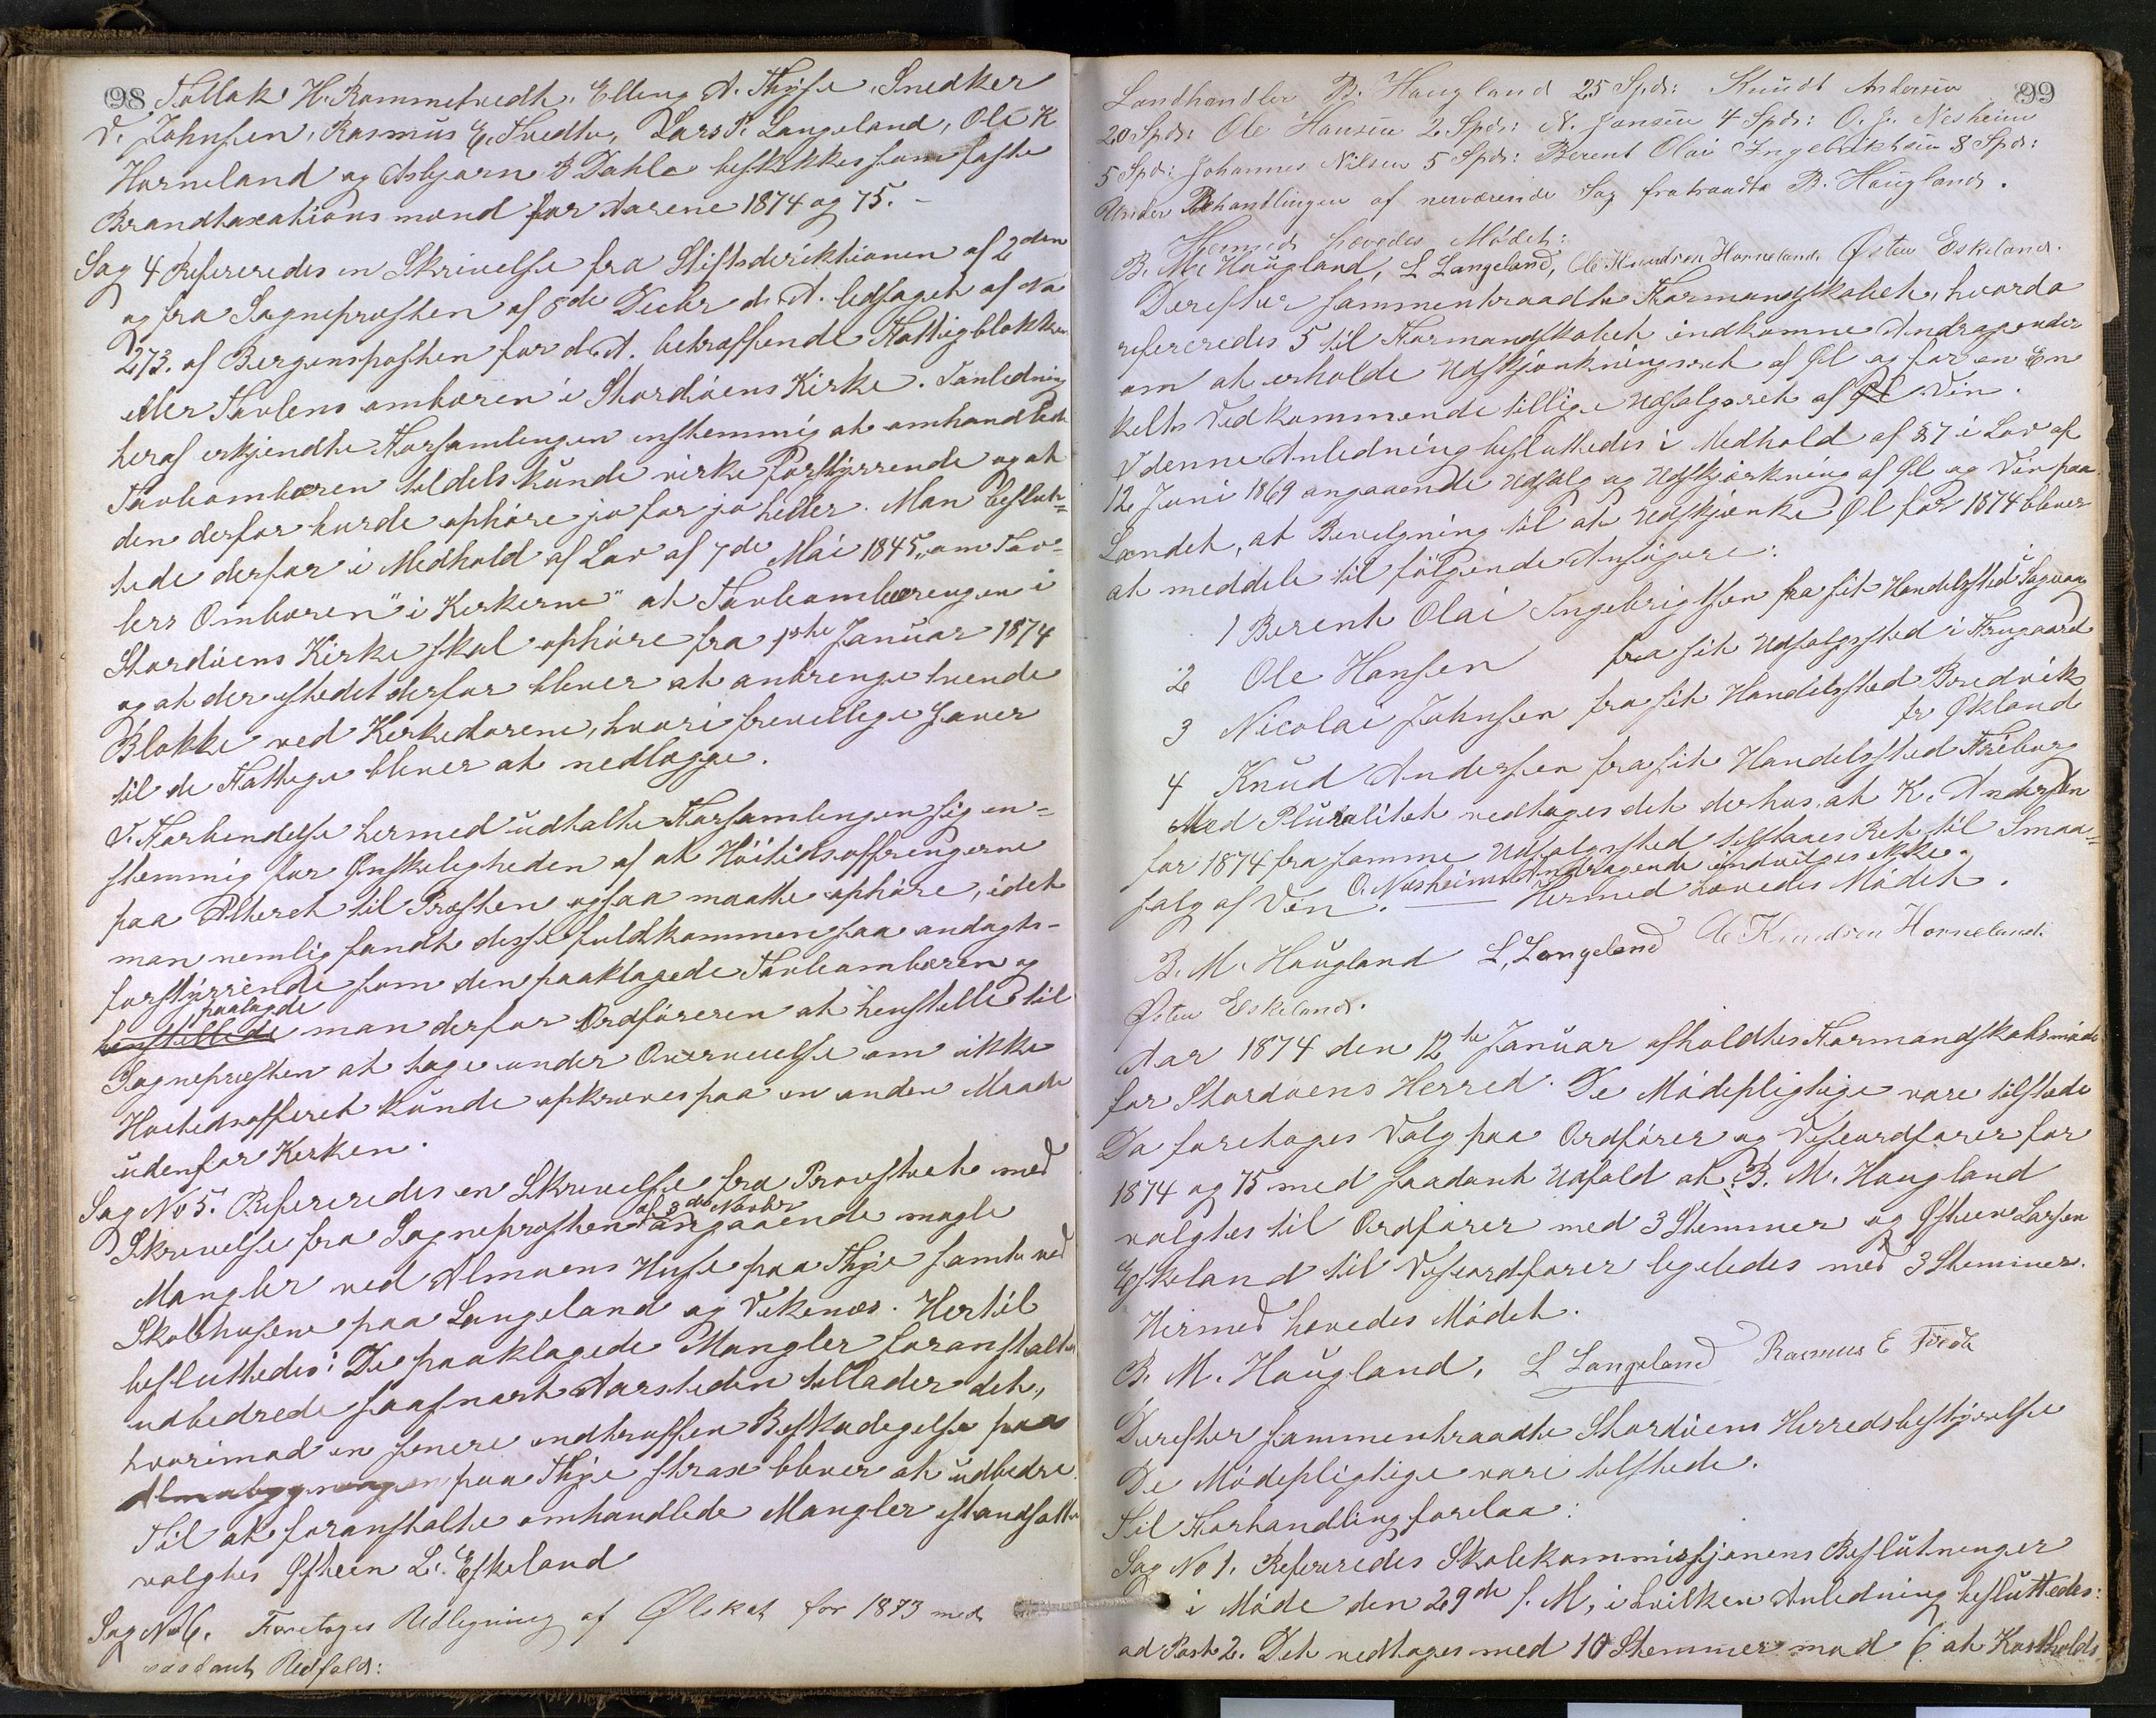 98
Tollak H. Rommetvedt, Elling A. Thyse, Snedker
V. Johnsen, Rasmus E. Tvedte, Lars P. Langeland, Ole K
Horneland og Asbjørn B Dahle beskikkes som faste
Brandtaxationsmænd for Aarene 1874 og 75. -
Sag 4 Refereredes en Skrivelse fra Stiftsdirektionen af 2den
og fra Sognepresten af 8de Decbr d. A. ledsaget af No
273. af Bergensposten for d. A. betræffende Fattigblokken
eller Tavlens ombæren i Stordøens Kirke. I anledning
heraf erkjendte Forsamlingen enstemmig at omhandlede
Tavleombæren tildels kunde virke forstyrrende og at
den derfor burde ophøre jo før jo heller. Man beslut=
tede derfor i Medhold af Lov af 7de Mai 1845 "om Tav=
lers Ombæren" i Kirkerne" at Tavleombæringen i
Stordøens Kirke skal ophøre fra 1ste Januar 1874
og at der istedet derfor bliver at anbringe tvende
Blokke ved Kirkedørene, hvori frevillige Gaver
til de Fattige bliver at nedlægge.
I Forbindelse hermed udtalte Forsamlingen sig en=
stemmig for Ønskeligheden af at Høitidsoffringerne
paa Alteret til Presten ogsaa maatte ophøre, idet
man nemlig fandt disse fuldkommen saa andagts-
forstyrrende som den paaklagede Tavleombæren og
henstillede paalagde man derfor Ordføreren at henstille til
Sognepresten at tage under Overveielse om ikke
Høitidsofferet kunde opkræves paa en anden Maade
udenfor Kirken.
Sag No 5. Refereredes en Skrivelse fra Provstiet med
Skrivelse fra Sognepresten af 3de Novbr angaaende nogle
Mangler ved Almuens Huse paa Thyse samt ved
Skolehusene paa Langeland og Vikenes. Hertil
besluttedes: De paaklagede Mangler foranstaltes
udbedrede saasnart Aarstiden tillader det,
hvorimod en senere indtruffen Beskadigelse paa
Almubygningen paa Thyse strax bliver at udbedre.
Til at foranstalte omhandlede Mangler istandsatte
valgtes Østein L. Eskeland
Sag No 6. Foretoges Udligning af Ølskat for 1873 med
saadant Udfald:
99
Landhandler B. Haugland 25 Spd: Knudt Andersen
20 Spd: Ole Hansen 2 Spd: N. Jansen 4 Spd: O. J. Nesheim
5 Spd: Johannes Nilsen 5 Spd: Berent Olai Ingebriktsen 8 Spd:
Under Behandlingen af nerværende Sag fratraadte B. Haugland.
Hermed hævedes Mødet:
B. M. Haugland, L Langeland, Ole Knudsen Horneland Østen Eskeland.
Derefter sammentraadte Formandskabet, hvorda
refereredes 5 til Formandskabet indkomne Andragender
om at erholde Udskjænkningsret af Øl og for en En
kelts Vedkommende tillige Udsalgsret af Øl Vin.
I denne Anledning besluttedes i Medhold af § 7 i Lov af
12 Juni 1869 angaaende Udsalg og Udskjænkning af Øl og Vin paa
Landet, at Bevilgning til at Udskjænke Øl for 1874 bliver
at meddele til følgende Ansøgere:
1 Berent Olai Ingebrigtsen fra sit Handelssted Sagvaag
2 Ole Hansen fra sit Udsalgssted i Haugaard
3 Nicolai Johnsen fra sit Handelssted Bredvik
fr Økland
4 Knud Andersen fra sit Handelssted Friborg
Med Pluralitet vedtages det derhos at K. Andersen
for 1874 fra samme Udsalgssted tilstaaes Ret til Smaa=
salg af Vin. O. Nesheims Andragende indvilges ikke.
Hermed hævedes Mødet.
B. M. Haugland L. Langeland Ole Knudsen Horneland
Østen Eskeland.
Aar 1874 den 12te Januar afholdtes Formandskabsmøde
for Stordøens Herred. De Mødepligtige vare tilstede
Da foretoges Valg paa Ordfører og Viseordfører for
1874 og 75 med saadant Udfald at: B. M. Haugland
valgtes til Ordfører med 3 Stemmer og Østeen Larsen
Eskeland til Viseordfører ligeledes med 3 Stemmer.
Hermed hævedes Mødet.
B. M. Haugland, L Langeland Rasmus E Tvedte
Derefter sammentraadte Stordøens Herredsbestyrelse
De Mødepligtige vare tilstede.
Til Forhandling forelaa:
Sag No 1. Refereredes Skolekommissjonens Beslutninger
i Møde den 29de f. M., i hvilken Anledning besluttedes:
ad Post 2. Det vedtages med 10 Stemmer mod 6 at Kostholds